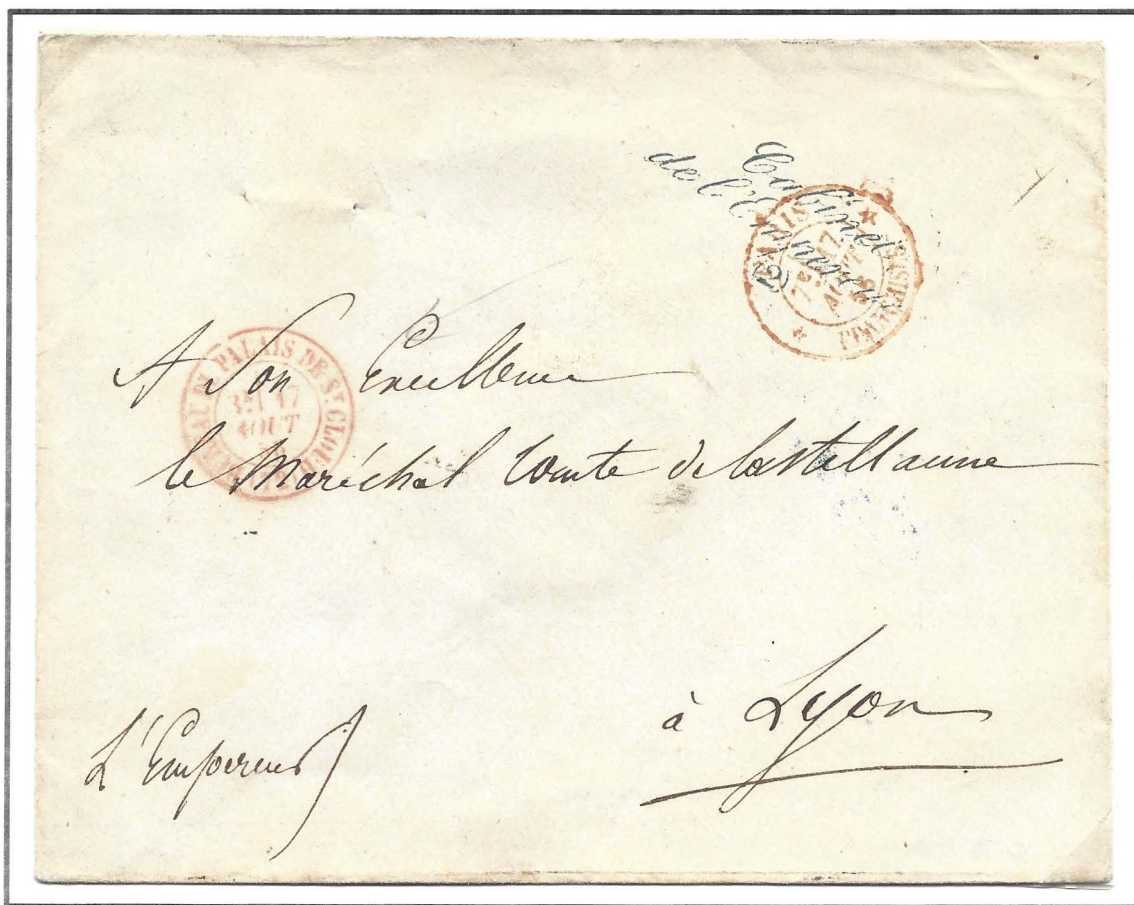 Cabinet
de l'Empereur
PARIS
(2)
17
AOUT
BUREAU DU PALAIS DE St CLOUD
17
AOUT
A Son Excellence
le Maréchal Comte de Castellanne
à Lyon
L'Empereur